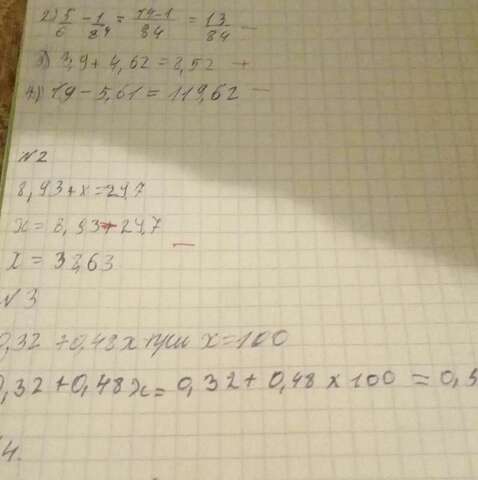 2) 5/6 - 1/84 = 14-1/84 = 13/84 -
3) 3,9 + 4,62 = 8,52 +
4) 19 - 5,61 = 119,62 -
N2
8,93 + x = 24,7
x = 8,93 + 24,7 -
x = 33,63
N3
0,32 + 0,48x при x = 100
0,32 + 0,48x = 0,32 + 0,48 x 100 = 0,3
4.